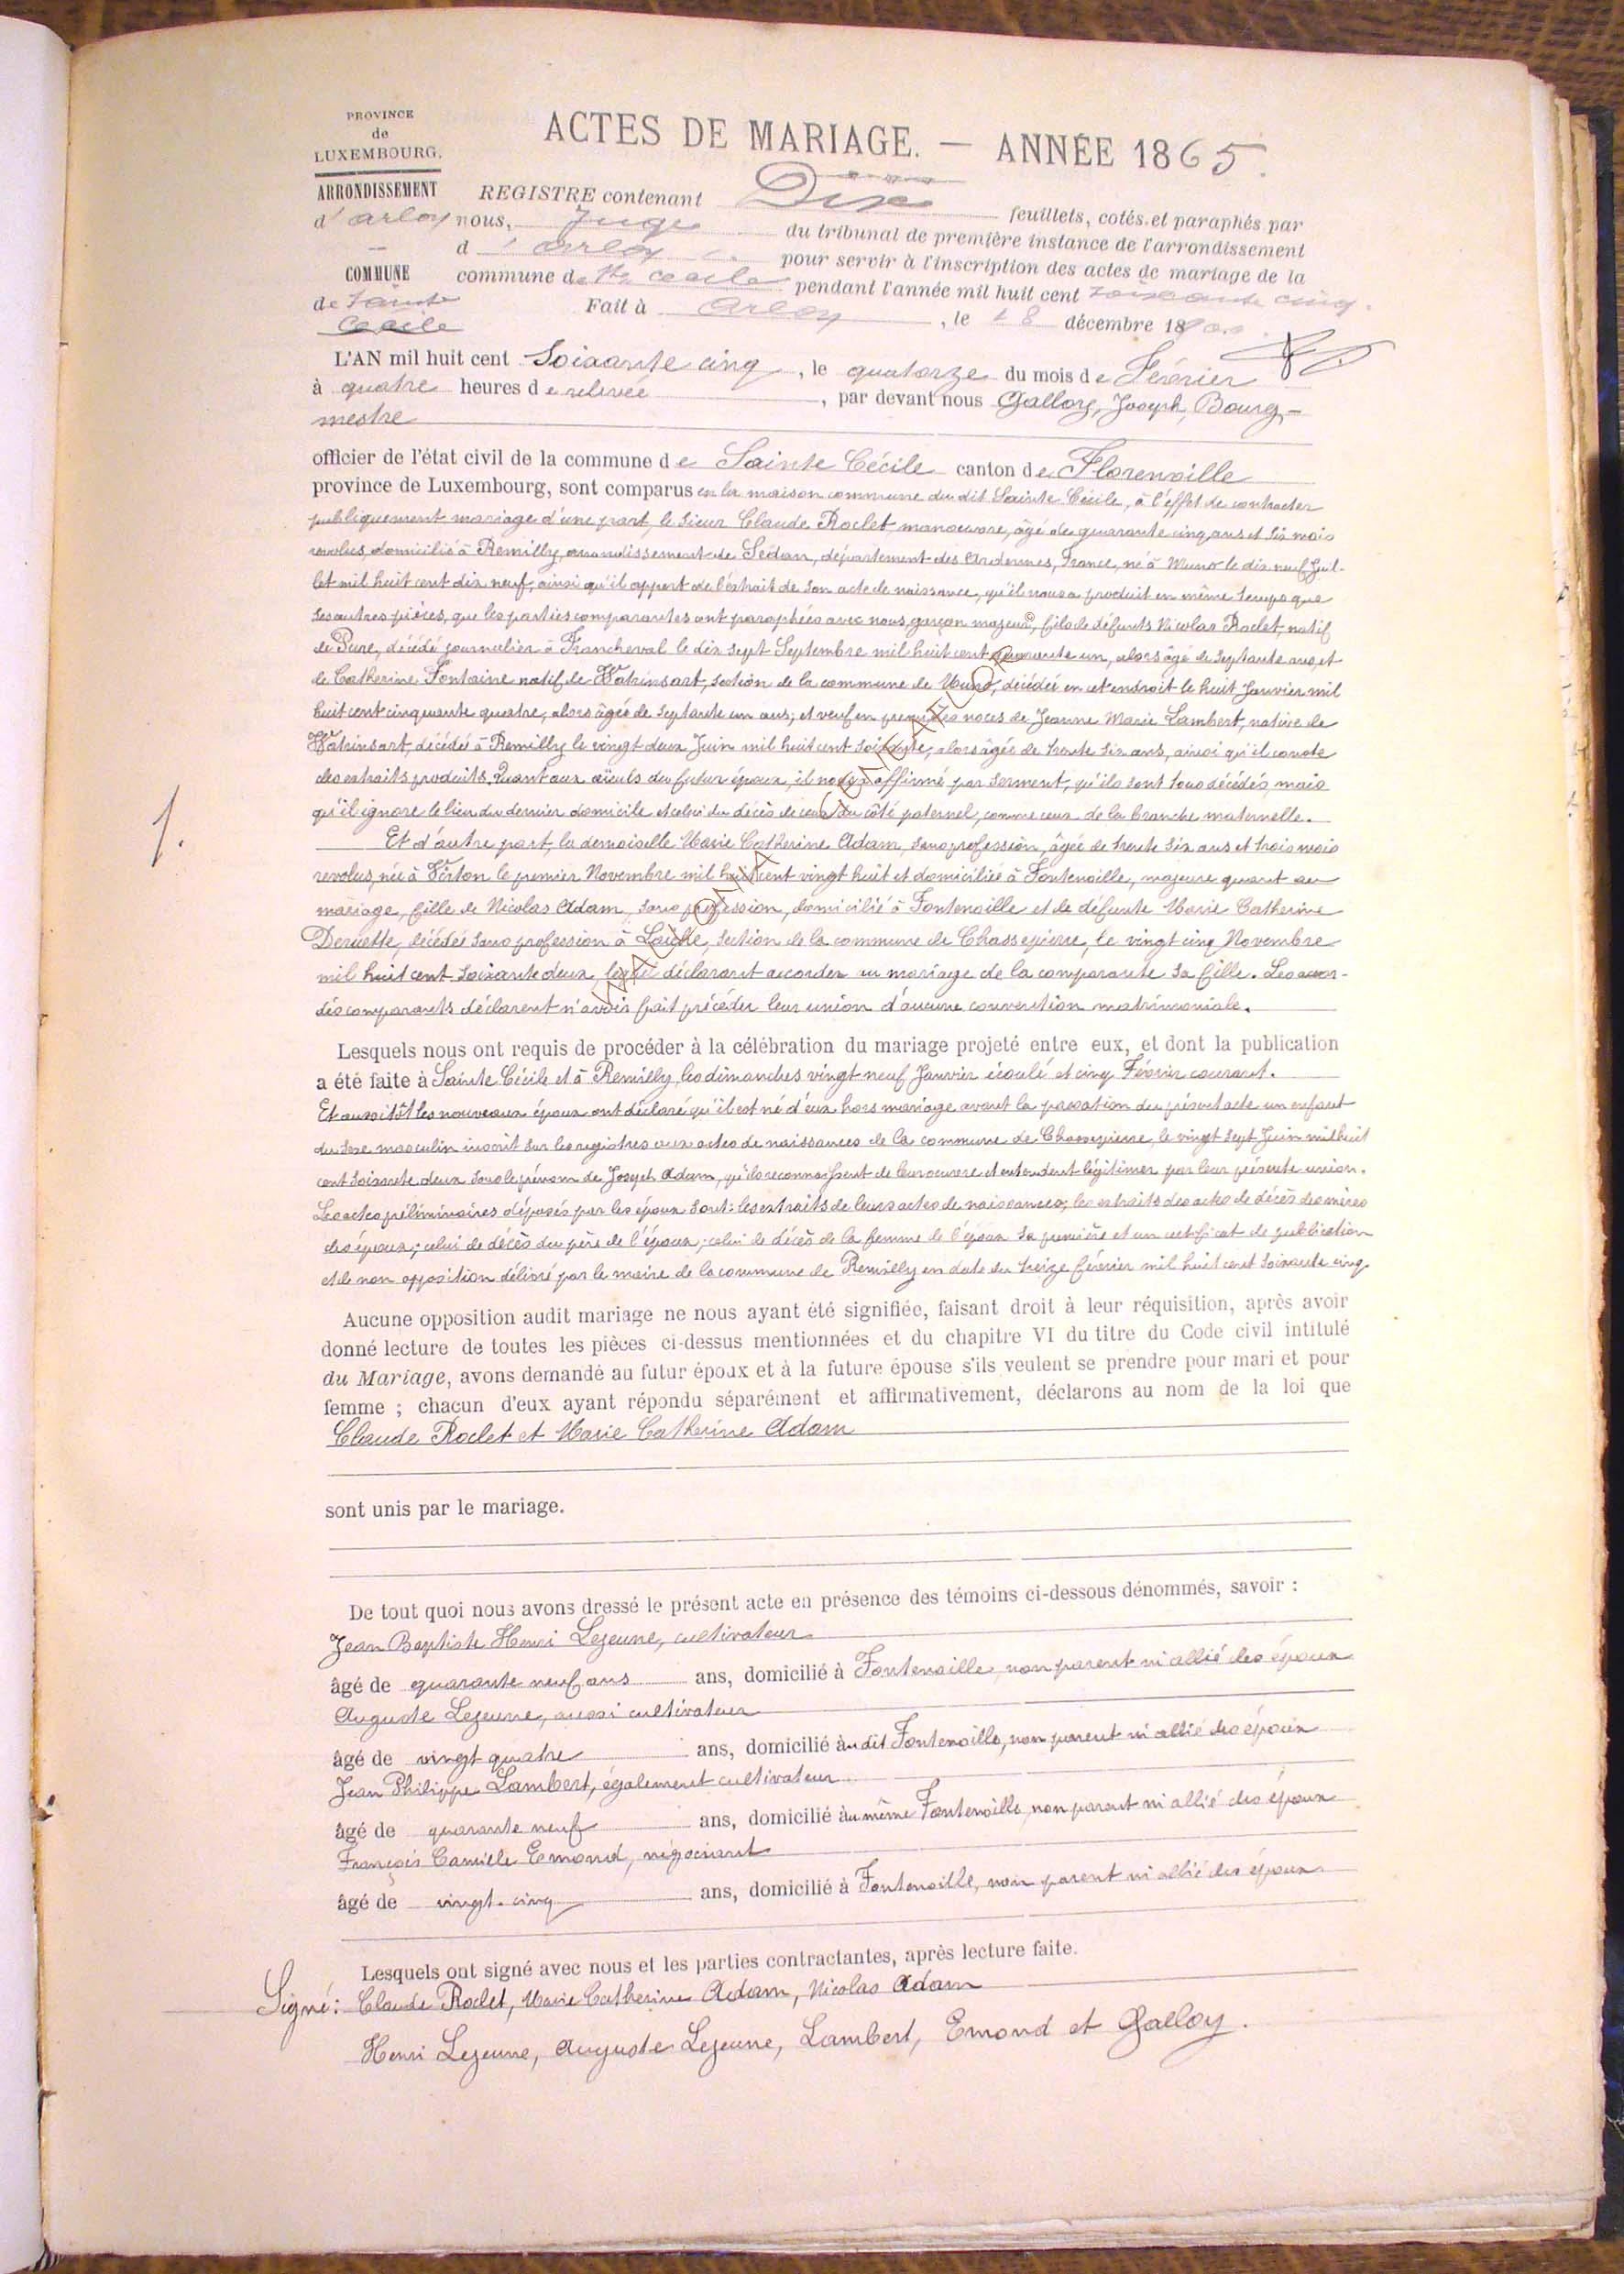 PROVINCE
de
LUXEMBOURG.
ARRONDISSEMENT
d'arlon
COMMUNE
de Sainte
Cecile
ACTES DE MARIAGE. — ANNÉE 1865.
REGISTRE contenant Dix feuillets, cotés et paraphés par
nous, Juge du tribunal de première instance de l'arrondissement
d'arlon pour servir à l'inscription des actes de mariage de la
commune de Ste cecile pendant l'année mil huit cent soixante cinq.
Fait à Arlon, le 18 décembre 18
L'AN mil huit cent Soixante cinq, le quatorze du mois de Février
à quatre heures de relevée, par devant nous Galloy, Joseph, Bourg-
mestre
officier de l'état civil de la commune de Sainte Cécile canton de Florenville
province de Luxembourg, sont comparus en la maison commune du dit Sainte Cécile, à l'effet de contracter
publiquement mariage d'une part, le Sieur Claude Roclet, manoeuvre, âgé de quarante cinq ans et six mois
révolus, domicilié à Remilly, arrondissement de Sedan, département des Ardennes, France, né à Muno le dix neuf Juil-
let mil huit cent dix neuf, ainsi qu'il appert de l'extrait de son acte de naissance, qu'il nous a produit en même temps que
ses autres pièces, que les parties comparantes ont paraphées avec nous, garçon majeur, fils de défunts Nicolas Roclet, natif
de Pure, décédé journalier à Francheval le dix sept Septembre mil huit cent quarante un, alors âgé de septante ans, et
de Catherine Fontaine natif de Watrinsart, section de la commune de Muno, décédée en cet endroit le huit Janvier mil
huit cent cinquante quatre, alors âgée de septante un ans; et veuf en premières noces de Jeanne Marie Lambert, native de
Watrinsart, décédée à Remilly le vingt deux Juin mil huit cent soixante, alors âgée de trente six ans, ainsi qu'il conste
des extraits produits. Quant aux aïeuls du futur époux, il nous a affirmé par serment, qu'ils sont tous décédés, mais
qu'il ignore le lieu du dernier domicile et celui du décès de ceux du côté paternel, comme ceux de la branche maternelle.
1.
Et d'autre part, la demoiselle Marie Catherine Adam, sans profession, âgée de trente six ans et trois mois
revolus, née à Virton le premier Novembre mil huit cent vingt huit et domiciliée à Fontenoille, majeure quant au
mariage, fille de Nicolas Adam, sans profession, domicilié à Fontenoille et de défunte Marie Catherine
Deruette, décédée sans profession à Laiche, section de la commune de Chassepierre, le vingt cinq Novembre
mil huit cent soixante deux, lequel déclarant accorder au mariage de la comparante sa fille. Les accor-
dés comparants déclarent n'avoir fait précéder leur union d'aucune convention matrimoniale.
Lesquels nous ont requis de procéder à la célébration du mariage projeté entre eux, et dont la publication
a été faite à Sainte Cécile et à Remilly, les dimanches vingt neuf Janvier écoulé et cinq Février courant.
Et aussitôt les nouveaux époux ont déclaré qu'il est né d'eux hors mariage avant la passation du présent acte un enfant
du sexe masculin inscrit sur les registres aux actes de naissances de la commune de Chassepierre, le vingt sept Juin mil huit
cent soixante deux sous le prénom de Joseph Adam, qu'ils reconnaissent de leurs œuvres et entendent légitimer par leur présente union.
Les actes préliminaires déposés par les époux sont: les extraits de leurs actes de naissances; les extraits des actes de décès des mères
des époux; celui de décès du père de l'époux; celui de décès de la femme de l'époux sa première et un certificat de publication
et de non opposition délivré par le maire de la commune de Remilly en date du treize février mil huit cent soixante cinq.
Aucune opposition audit mariage ne nous ayant été signifiée, faisant droit à leur réquisition, après avoir
donné lecture de toutes les pièces ci-dessus mentionnées et du chapitre VI du titre du Code civil intitulé
du Mariage, avons demandé au futur époux et à la future épouse s'ils veulent se prendre pour mari et pour
femme ; chacun d'eux ayant répondu séparément et affirmativement, déclarons au nom de la loi que
Claude Roclet et Marie Catherine Adam
sont unis par le mariage.
De tout quoi nous avons dressé le présent acte en présence des témoins ci-dessous dénommés, savoir :
Jean Baptiste Henri Lejeune, cultivateur
âgé de quarante neuf ans ans, domicilié à Fontenoille, non parent ni allié des époux
Auguste Lejeune, aussi cultivateur
âgé de vingt quatre ans, domicilié au dit Fontenoille, non parent ni allié des époux
Jean Philippe Lambert, également cultivateur
âgé de quarante neuf ans, domicilié au même Fontenoille, non parent ni allié des époux
François Camille Emond, négociant
âgé de vingt-cinq ans, domicilié à Fontenoille, non parent ni allié des époux
Lesquels ont signé avec nous et les parties contractantes, après lecture faite.
Signé: Claude Roclet, Marie Catherine Adam, Nicolas Adam
Henri Lejeune, Auguste Lejeune, Lambert, Emond et Galloy.